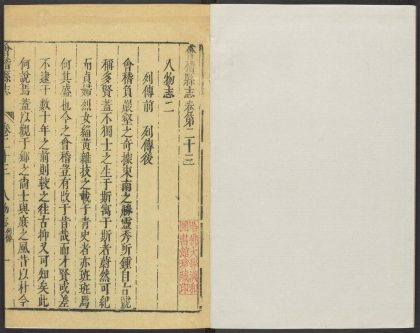 會稽縣志卷第二十三
人物志二
列傳前 列傳後
會稽負巖壑之奇擅東南之勝靈秀所鍾自古號
稱多賢蓋不獨士之生于斯寓于斯者蔚然可紀
而貞婦烈女緇黃雜技之載于青史者亦班班焉
何其盛也今之會稽豈有改于昔哉而才賢或差
不逮于數十年之前則較之往古抑又可知矣此
何說焉蓋以觀于鄉之尚士與庶之風昔以朴今
會稽縣志
卷二十三
人物志